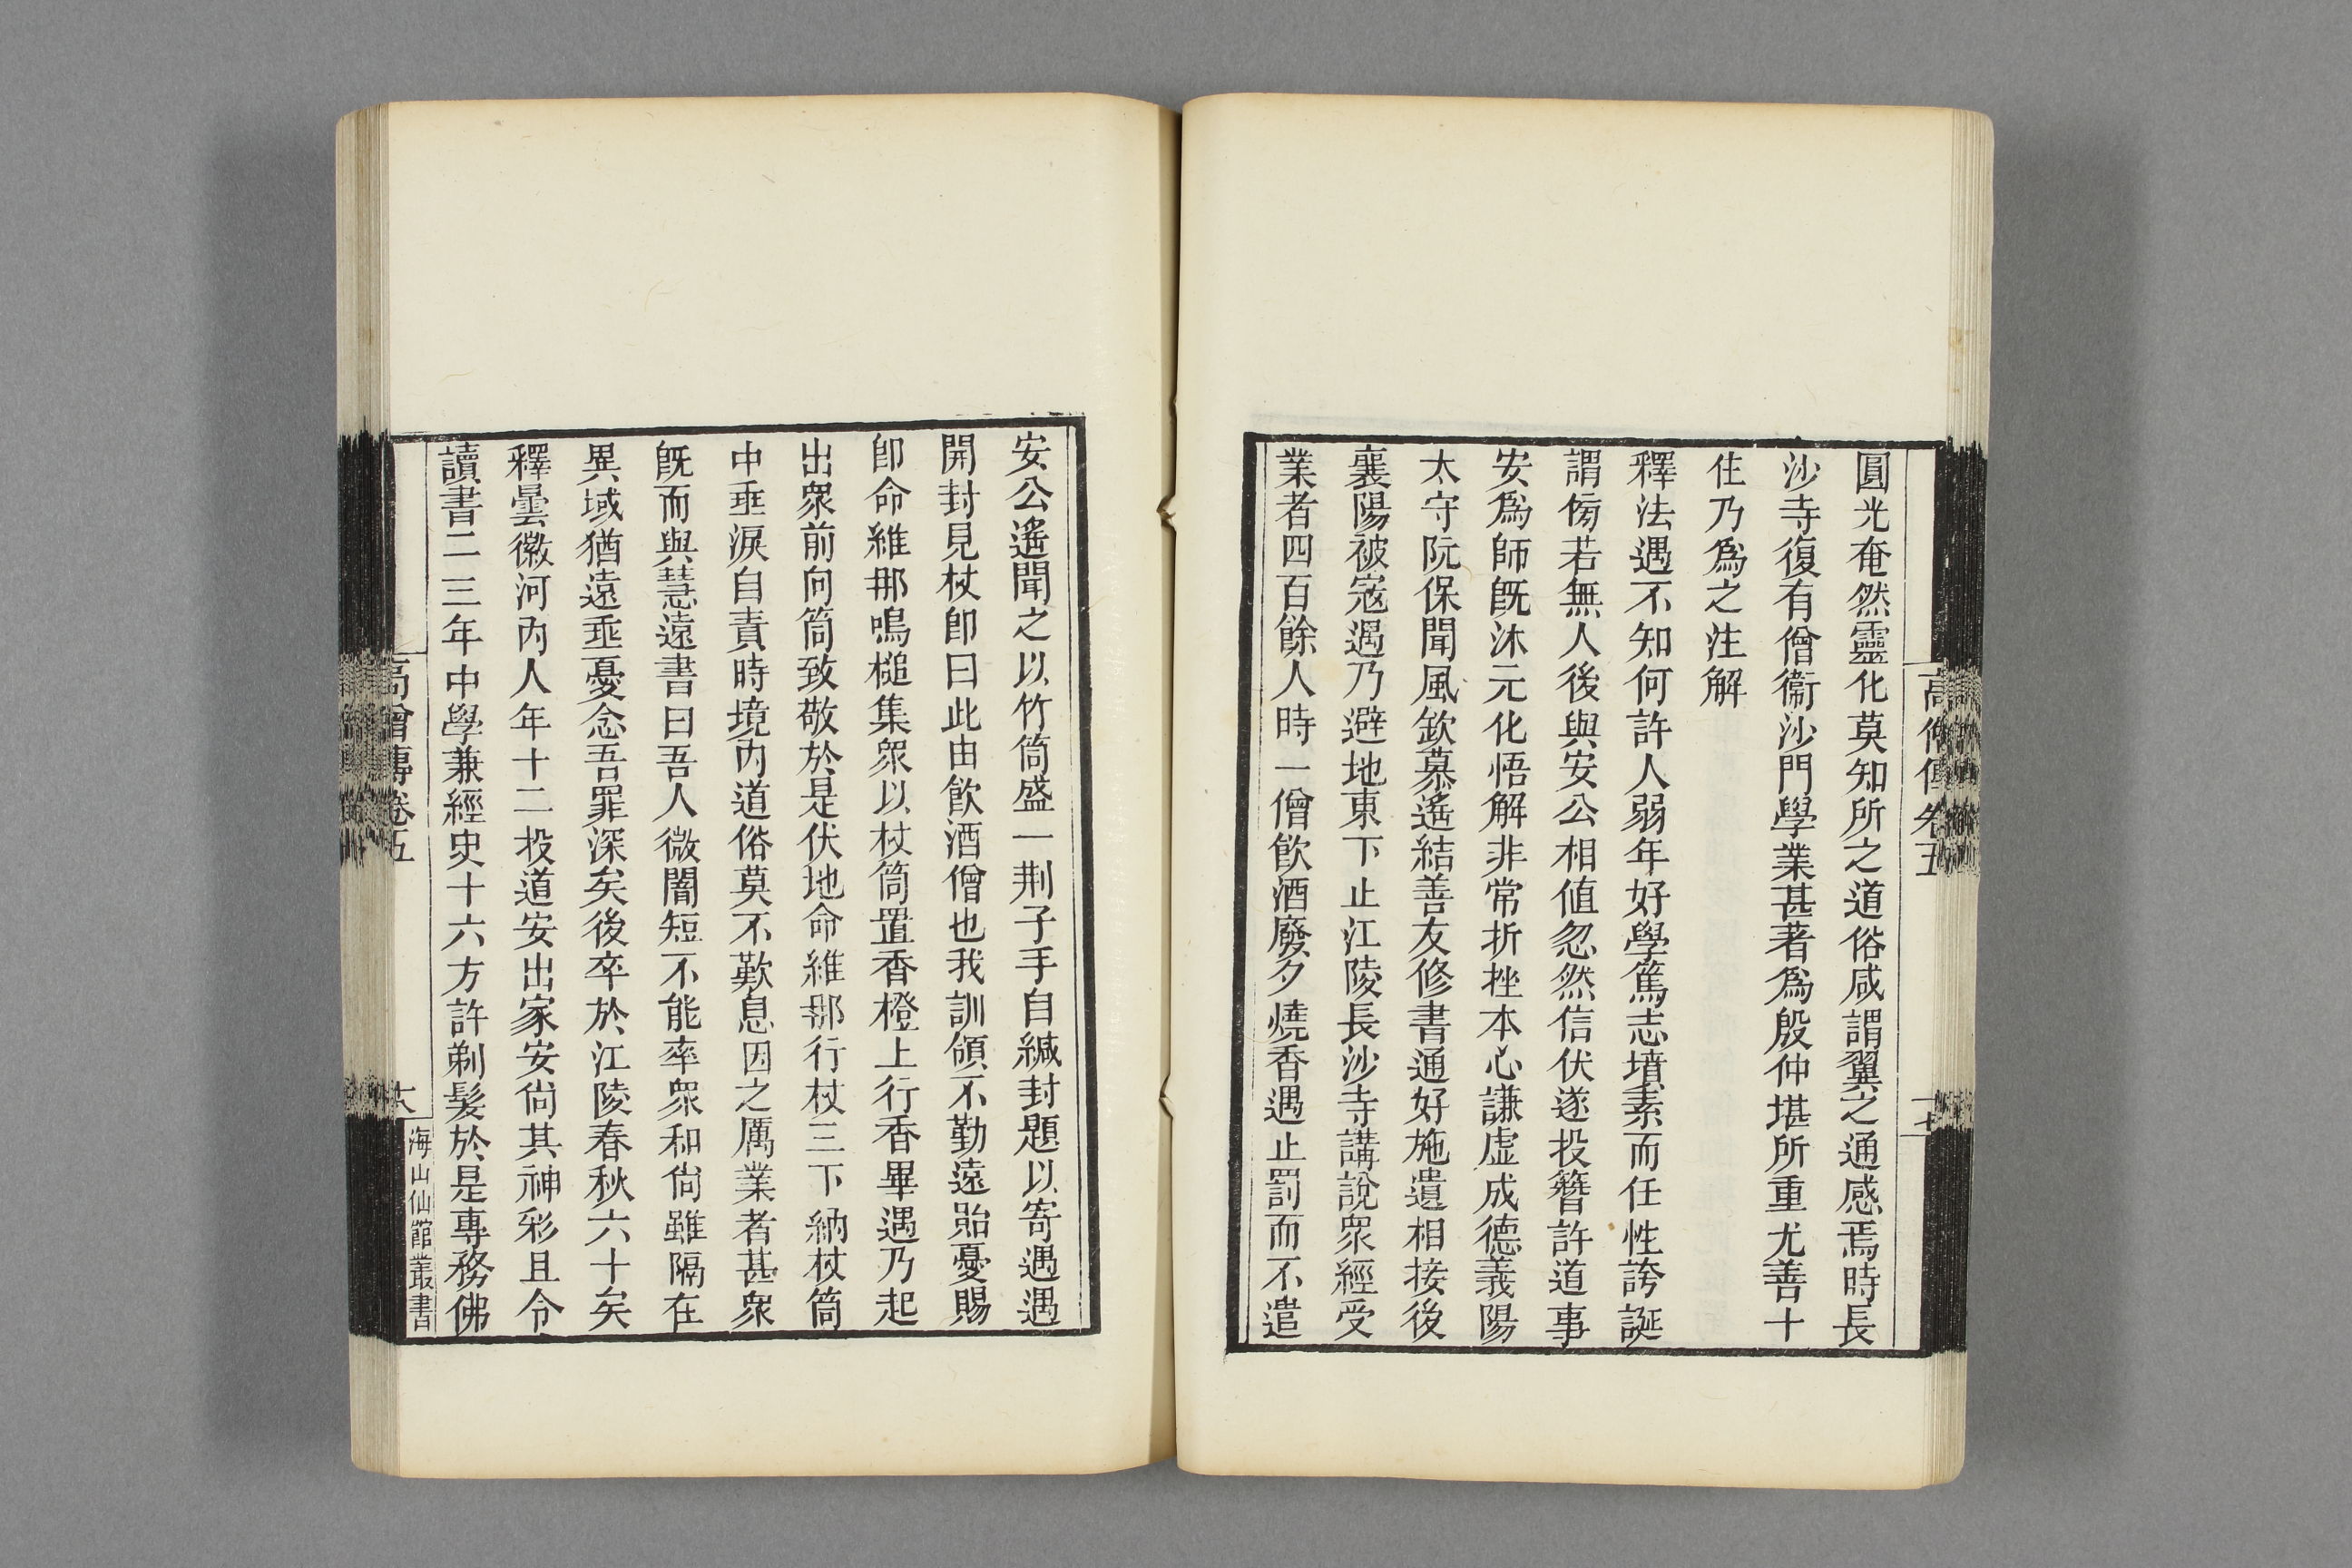 高僧傳卷五
十七
圓光奄然靈化莫知所之道俗咸謂翼之通感焉時長
沙寺復有僧衞沙門學業甚著爲殷仲堪所重尤善十
住乃爲之注解
釋法遇不知何許人弱年好學篤志墳素而任性誇誕
謂傍若無人後與安公相值忽然信伏遂投簪許道事
安爲師旣沐元化悟解非常折挫本心謙虛成德義陽
太守阮保聞風欽慕遙結善友修書通好施遺相接後
襄陽被寇遇乃避地東下止江陵長沙寺講說衆經受
業者四百餘人時一僧飮酒廢夕燒香遇止罰而不遣
安公遙聞之以竹筒盛一荆子手自緘封題以寄遇遇
開封見杖卽曰此由飮酒僧也我訓領不勤遠貽憂賜
卽命維那鳴槌集衆以杖筒置香橙上行香畢遇乃起
出衆前向筒致敬於是伏地命維那行杖三下納杖筒
中垂淚自責時境內道俗莫不歎息因之厲業者甚衆
旣而與慧遠書曰吾人微闇短不能率衆和尙雖隔在
異域猶遠垂憂念吾罪深矣後卒於江陵春秋六十矣
釋曇徽河內人年十二投道安出家安尙其神彩且令
讀書二三年中學兼經史十六方許剃髮於是專務佛
高僧傳卷五
十八
海山仙館叢書